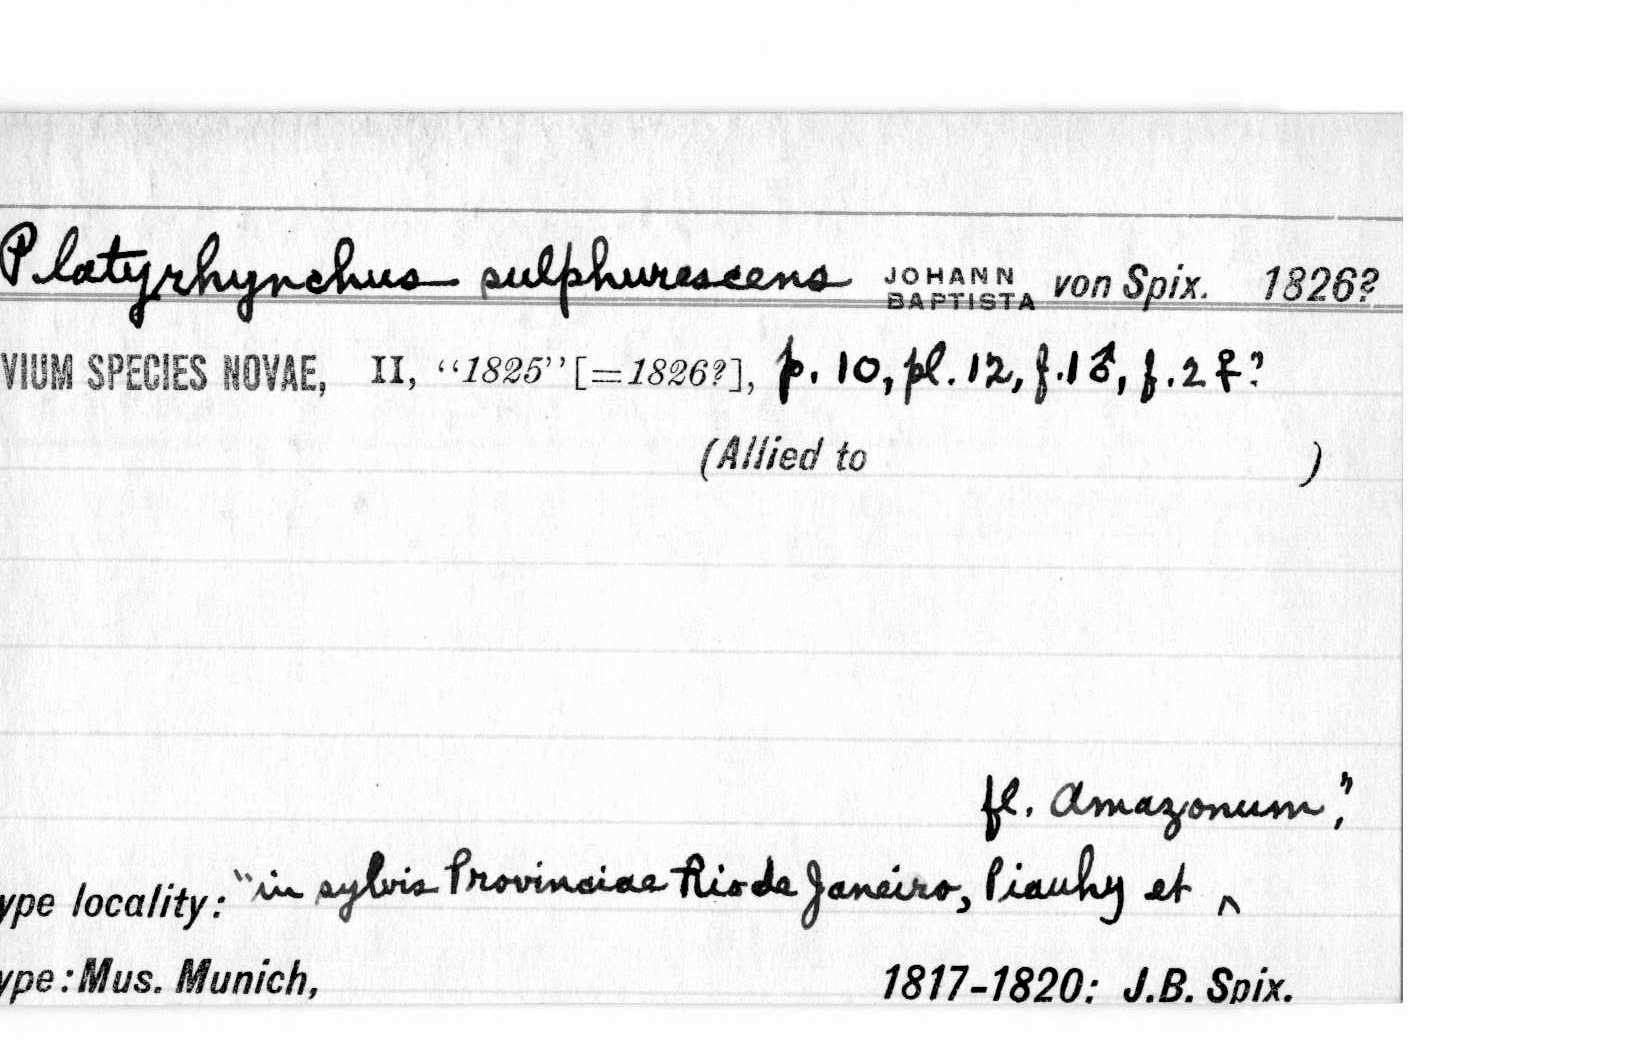 Platyrhynchus sulphurescens JOHANN BAPTISTA von Spix. 1826?
VIUM SPECIES NOVAE, II, “1825” [=1826?], p. 10, pl. 12, f. 1 ♂, f. 2 ♀?
(Allied to )
fl. Amazonum",
ype locality: "in sylvis Provinciae Rio de Janeiro, Piauhy et ^
ype: Mus. Munich, 1817-1820: J.B. Spix.